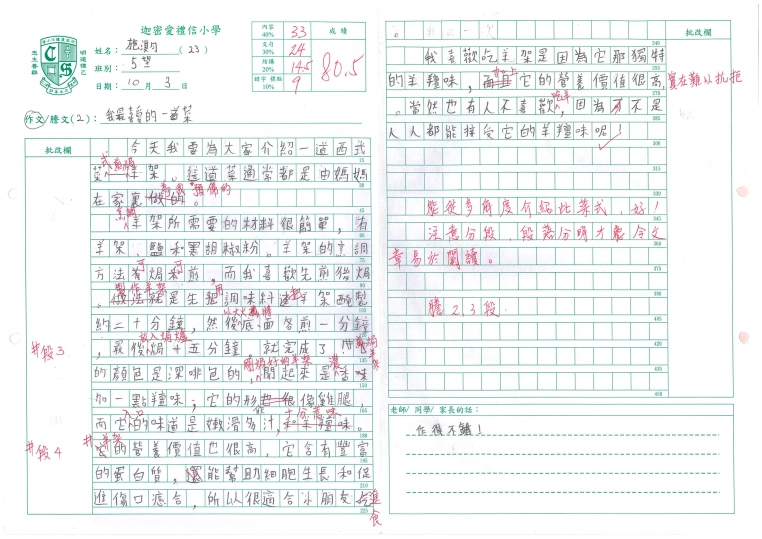 迦密愛禮信小學
明道律己
忠主善群
姓名: 施灝昀 (23)
班別: 5望
日期: 10 月 3 日
作文/謄文(2): 我最喜愛的一道菜
內容 40% 33
文句 30% 24
結構 20% 14.5
錯字 標點 10% 9
成績
80.5
批改欄
今天我要為大家介紹一道西式
菜 羊架。這道菜通常都是由媽媽
在家裏做的。
羊架所需要的材料很簡單,有
羊架、鹽和黑胡椒粉。羊架的烹調
方法有焗和煎,而我喜歡先煎後焗
。做法就是先把調味料連羊架醃製
約二十分鐘,然後底、面各煎一分鐘
,最後焗十五分鐘,就完成了!它
的顏色是深啡色的,聞起來是香味
加一點羶味;它的形狀很像雞腿,
而它的味道是嫩滑多汁,和羊羶味。
它的營養價值也很高,它含有豐富
的蛋白質,還能幫助細胞生長和促
進傷口癒合,所以很適合小朋友吃
進食
#段3
#段4
。
批改欄
我喜歡吃羊架是因為它那獨特
的羊羶味,而且它的營養價值很高,實在難以抗拒
。當然也有人不喜歡,因為不是
人人都能接受它的羊羶味呢!
能從多角度介紹此菜式,好!
注意分段,段落分明才會令文
章易於閱讀。
謄2,3段.
老師/ 同學/ 家長的話:
作得不錯!